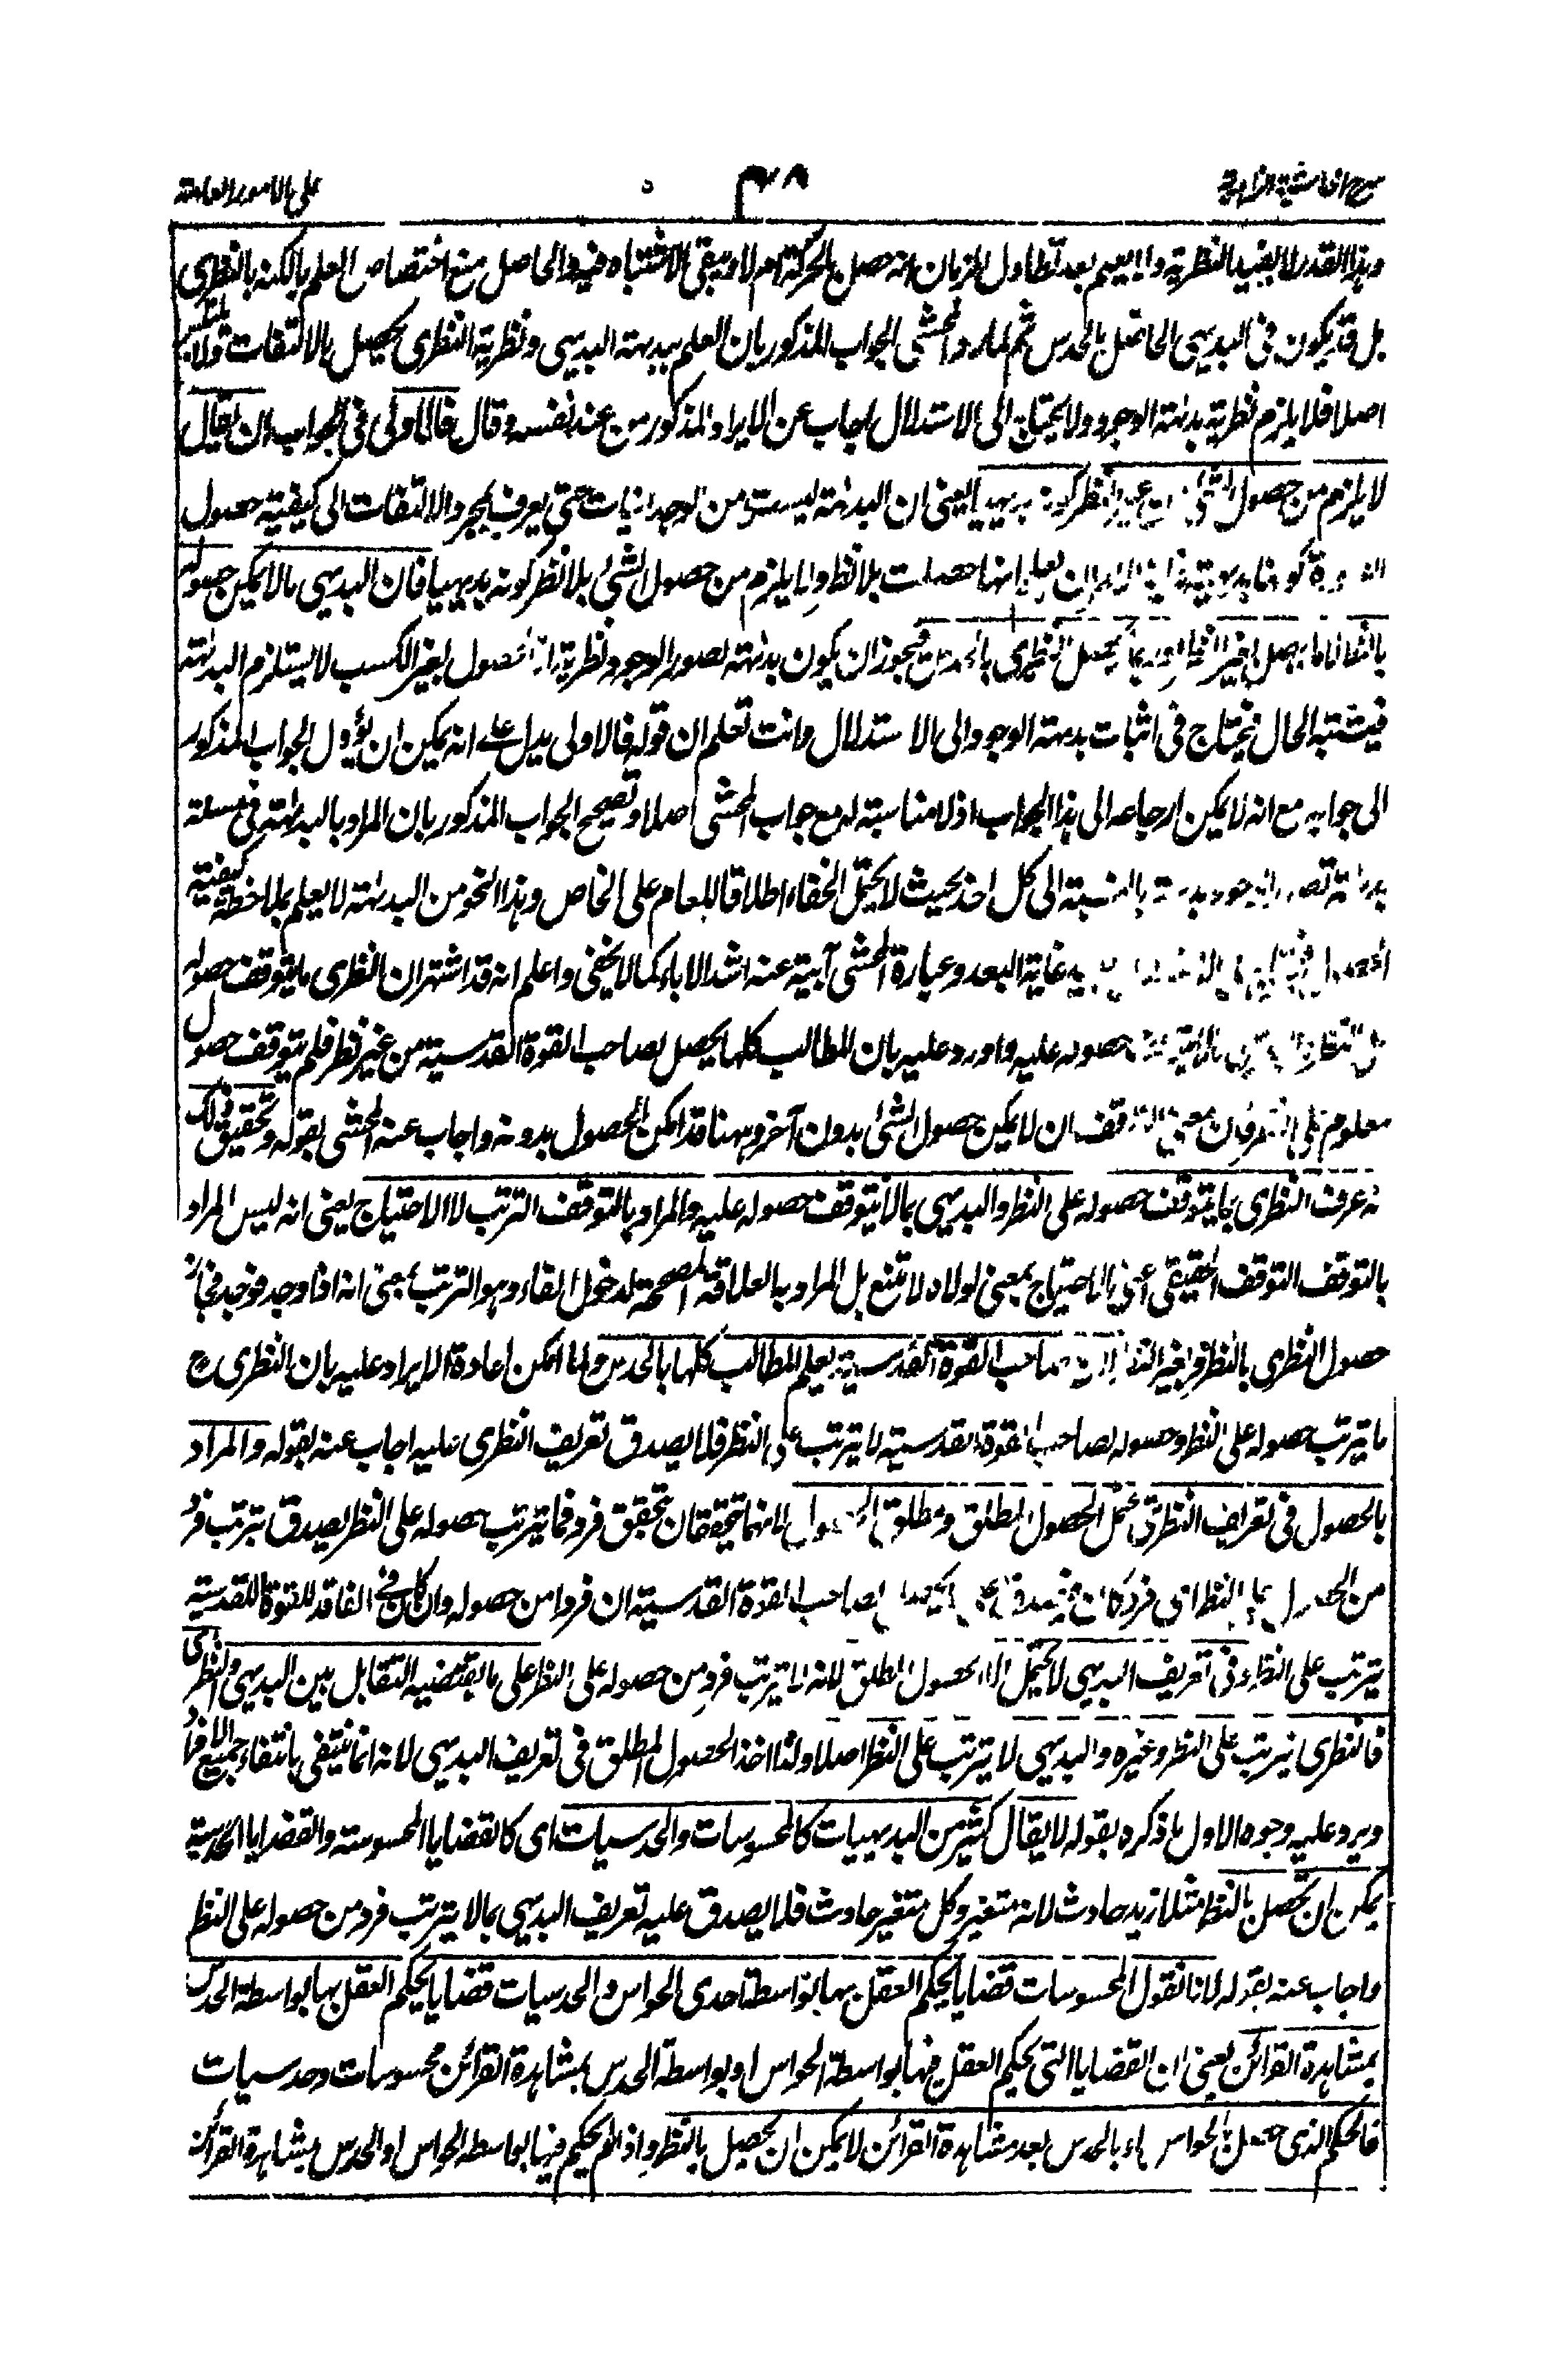 شرح الحاشية الزاهدية ٣٨ على الامور العامة
وهذا القدر لا يفيد النظرية ولا يعلم بعد تطاول الزمان انه حصل بالحركة ام لا ويبقى الاشتباه فيه والحاصل منع اختصاص العلم بالكنه بالنظرى
بل قد يكون فى البديهى الحاصل بالحدس ثم لما رد المحشى الجواب المذكور بان العلم ببداهة البديهى ونظرية النظرى يحصل بالالتفات ولا يلتبس
اصلا فلا يلزم نظرية بداهة الوجود ولا يحتاج الى الاستدلال اجاب عن الايراد المذكور من عند نفسه وقال فالاولى فى الجواب ان يقال
لا يلزم من حصول الشئ من غير نظر كونه بديهيا يعنى ان البداهة ليست من الوجدانيات حتى يعرف بمجرد الالتفات الى كيفية حصول
الصورة كونها بديهية بلا نظر ولا يلزم من حصول الشئ بلا نظر كونه بديهيا فان البديهى ما لا يمكن حصوله
بالنظر لا ما يحصل بغير النظر وربما يحصل النظرى بالحدس فيجوز ان يكون بداهة تصور الوجود نظرية اذ الحصول بغير الكسب لا يستلزم البداهة
فيشتبه الحال فيحتاج فى اثبات بداهة الوجود الى الاستدلال وانت تعلم ان قوله فالاولى يدل على انه يمكن ان يؤول الجواب المذكور
الى جوابه مع انه لا يمكن ارجاعه الى هذا الجواب اذ لا مناسبة له مع جواب المحشى اصلا وتصحيح الجواب المذكور بان المراد بالبداهة فى مسئلة
بداهة تصور الوجود بداهة بالنسبة الى كل احد بحيث لا يحتمل الخفاء اطلاقا للعام على الخاص وهذا النحو من البداهة لا يعلم بملاحظة كيفية
الحصول غاية البعد وعبارة المحشى آبية عنه اشد الاباء كما لا يخفى واعلم انه قد اشتهر ان النظرى ما يتوقف حصوله
على النظر والبديهى ما لا يتوقف حصوله عليه واورد عليه بان المطالب كلها يحصل لصاحب القوة القدسية من غير نظر فلم يتوقف حصول
معلوم على النظر فان معنى التوقف ان لا يمكن حصول الشئ بدون آخر وههنا قد امكن الحصول بدونه واجاب عنه المحشى بقوله وتحقيق ذلك
انه عرف النظرى بما يتوقف حصوله على النظر والبديهى بما لا يتوقف حصوله عليه والمراد بالتوقف الترتب لا الاحتياج يعنى انه ليس المراد
بالتوقف التوقف الحقيقى اعنى الاحتياج بمعنى لولاه لامتنع بل المراد به العلاقة المصححة لدخول الفاء وهو الترتب بمعنى انه اذا وجد فوجد فجاز
حصول النظرى بالنظر وبغير النظر صاحب القوة القدسية يعلم المطالب كلها بالحدس ولما امكن اعادة الايراد عليه بان النظرى ح
ما يترتب حصوله على النظر وحصوله لصاحب القوة القدسية لا يترتب على النظر فلا يصدق تعريف النظرى عليه اجاب عنه بقوله والمراد
بالحصول فى تعريف النظرى يحتمل الحصول المطلق ومطلق الحصول لانهما يتحققان بتحقق فرد فما يترتب حصوله على النظر يصدق بترتب فرد
من الحصول على النظر اى فرد كان لصاحب القوة القدسية ان فردا من حصوله وان كان فى الفاقد للقوة القدسية
يترتب على النظر وفى تعريف البديهى لا يحتمل الا الحصول المطلق لانه لا يترتب فرد من حصوله على النظر على ما يقتضيه التقابل بين البديهى والنظرى
فالنظرى يترتب على النظر وغيره والبديهى لا يترتب على النظر اصلا ولذا اخذ الحصول المطلق فى تعريف البديهى لانه انما ينتفى بانتفاء جميع الافراد
ويرد عليه وجوه الاول ما ذكره بقوله لا يقال كثير من البديهيات كالمحسوسات والحدسيات اى كالقضايا المحسوسة والقضايا الحدسية
يمكن ان تحصل بالنظر مثلا زيد حادث لانه متغير وكل متغير حادث فلا يصدق عليه تعريف البديهى بما لا يترتب فرد من حصوله على النظر
واجاب عنه بقوله لانا نقول المحسوسات قضايا يحكم العقل بها بواسطة احدى الحواس والحدسيات قضايا يحكم العقل بها بواسطة الحدس
بمشاهدة القرائن يعنى ان القضايا التى يحكم العقل فيها بواسطة الحواس او بواسطة الحدس بمشاهدة القرائن محسوسات وحدسيات
فالحكم الذى حصل بالحواس او بالحدس بعد مشاهدة القرائن لا يمكن ان يحصل بالنظر واذا لم يحكم فيها بواسطة الحواس او الحدس بمشاهدة القرائن